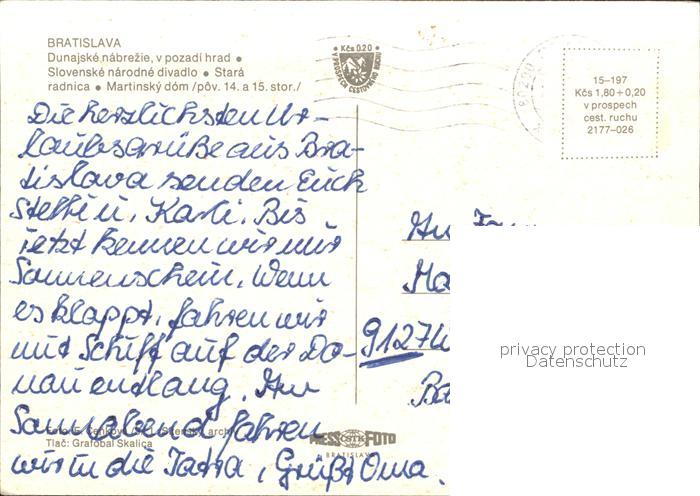 BRATISLAVA
Dunajské nábrežie, v pozadí hrad •
Slovenské národné divadlo • Stará
radnica • Martinský dóm /pôv. 14. a 15. stor./
Kčs 0.20
V PROSPECH CESTOVNÉHO RUCHU
15–197
Kčs 1,80 + 0,20
v prospech
cest. ruchu
2177–026
Die herzlichsten Ur-
laubsgrüße aus Bra-
tislava senden Euch
Steffi u. Karli. Bis
jetzt kennen wir nur
Sonnenschein. Wenn
es klappt, fahren wir
mit Schiff auf der Do-
nau entlang. Am
Sonnabend fahren
wir in die Tatra, Grüßt Oma.
An
9127
privacy protection
Datenschutz
Tlač: Grafobal Skalica
PRESSFOTO
BRATISLAVA